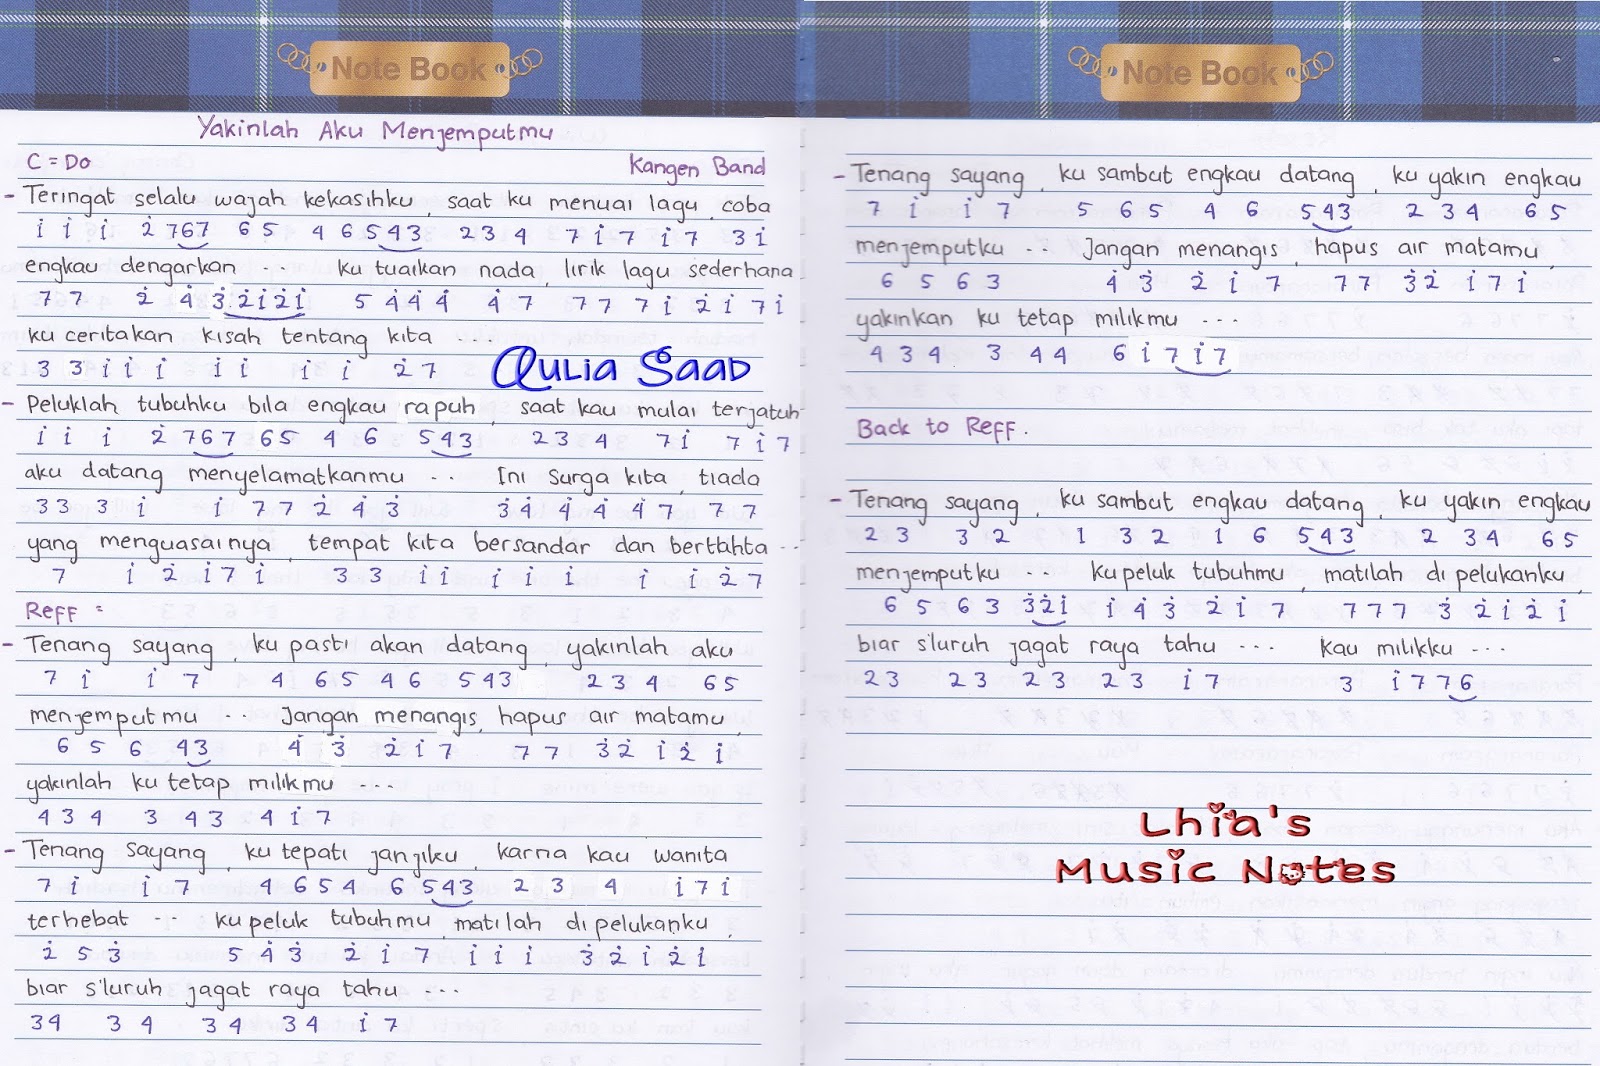 Note Book
Yakinlah Aku Menjemputmu
C = Do Kangen Band
- Teringat selalu wajah kekasihku, saat ku menuai lagu, coba
i i i 2̇ 767 65 4 6543 234 7 i 7 i7 3i
engkau dengarkan ... ku tuaikan nada, lirik lagu sederhana
77 2̇ 4̇ 3̇2̇i2̇i 5 4̇4̇4̇ 4̇7 77 7i 2̇i7i
ku ceritakan kisah tentang kita ...
3 3iii ii i i 2̇7
Qulia Saad
- Peluklah tubuhku bila engkau rapuh, saat kau mulai terjatuh
i i i 2̇ 767 65 4 6 543 234 7i 7i7
aku datang menyelamatkanmu ... Ini surga kita, tiada
33 3i i 77 2̇ 4̇ 3̇ 3̇4̇ 4̇4̇ 4̇7 77
yang menguasainya, tempat kita bersandar dan bertahta ...
7 i 2̇ i7i 33 ii i i i i i 2̇7
Reff :
- Tenang sayang, ku pasti akan datang, yakinlah aku
7 i i 7 4 65 46 543 234 65
menjemputmu ... Jangan menangis, hapus air matamu,
6 5 6 43 4̇ 3̇ 2̇i7 77 3̇2̇ i2̇i
yakinlah ku tetap milikmu ...
434 3 43 4i7
- Tenang sayang, ku tepati janjiku, karna kau wanita
7i i7 4 654 6 543 23 4 i7i
terhebat ... ku peluk tubuhmu, matilah di pelukanku,
2̇ 5 3̇ 5 4̇3̇ 2̇i7 iii 3̇2̇i2̇i
biar s'luruh jagat raya tahu ...
34 34 34 34 i7
Note Book
- Tenang sayang, ku sambut engkau datang, ku yakin engkau
7 i i 7 5 65 4 6 543 2 34 65
menjemputku ... Jangan menangis, hapus air matamu,
6 5 6 3 4̇ 3̇ 2̇ i 7 77 3̇2̇ i7i
yakinkan ku tetap milikmu ...
434 3 44 6 i7i7
Back to Reff.
- Tenang sayang, ku sambut engkau datang, ku yakin engkau
23 32 1 32 1 6 543 2 34 65
menjemputku ... Ku peluk tubuhmu, matilah di pelukanku,
6 5 6 3 3̇2̇i i 4̇3̇ 2̇i7 777 3̇ 2̇i2̇i
biar s'luruh jagat raya tahu ... Kau milikku ...
23 23 23 23 i7 3 i776
Lhia's
Music Notes